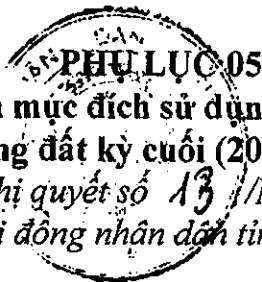 PHỤ LỤC 05
mục đích sử dụn
ng đất kỳ cuối (20
hị quyết số 13 /
i đồng nhân dân tỉn